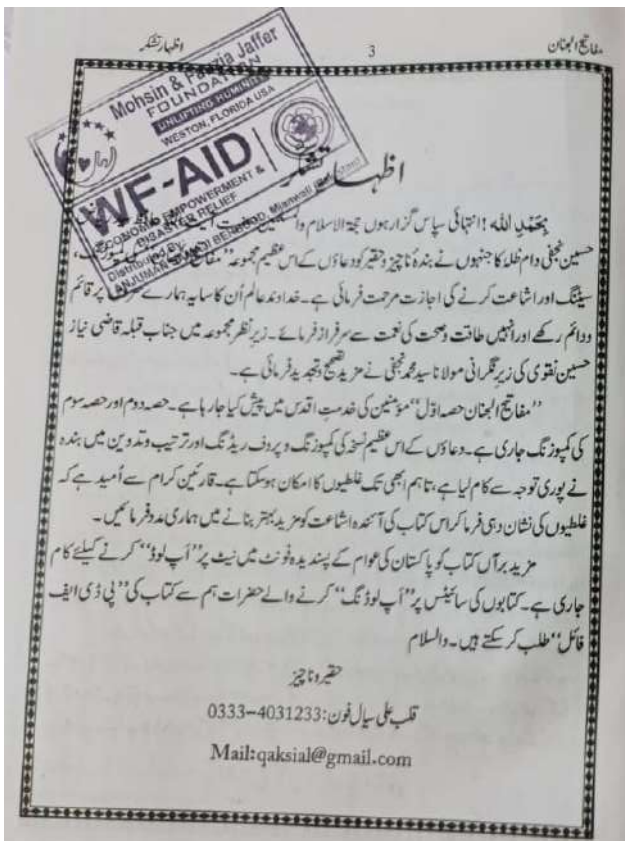 مفاتیح الجنان
3
اظہار تشکر
Mohsin & Fauzia Jaffer
FOUNDATION
UPLIFTING HUMANITY
WESTON, FLORIDA USA
WF-AID
ECONOMIC EMPOWERMENT &
DISASTER RELIEF
Distributed By
ANJUMAN BEHBOOD, Mianwali
اظہار تشکر
بِحَمْدِ اللہ! انتہائی سپاس گزار ہوں حجۃ الاسلام
حسین نجفی دام ظلہٗ کا جنہوں نے بندہٗ ناچیز وحقیر کو دعاؤں کے اس عظیم مجموعہ ’’مفاتیح
سیٹنگ اور اشاعت کرنے کی اجازت مرحمت فرمائی ہے۔ خداوند عالم اُن کا سایہ ہمارے پر قائم
ودائم رکھے اور انہیں طاقت وصحت کی نعمت سے سرفراز فرمائے۔ زیر نظر مجموعہ میں جناب قبلہ قاضی نیاز
حسین نقوی کی زیر نگرانی مولانا سید محمد نجفی نے مزید تصحیح وتجدید فرمائی ہے۔
’’مفاتیح الجنان حصہ اوّل‘‘ مؤمنین کی خدمتِ اقدس میں پیش کیا جا رہا ہے۔ حصہ دوم اور حصہ سوم
کی کمپوزنگ جاری ہے۔ دعاؤں کے اس عظیم نسخہ کی کمپوزنگ وپروف ریڈنگ اور ترتیب وتدوین میں بندہ
نے پوری توجہ سے کام لیا ہے، تاہم ابھی تک غلطیوں کا امکان ہوسکتا ہے۔ قارئین کرام سے اُمید ہے کہ
غلطیوں کی نشان دہی فرما کر اس کتاب کی آئندہ اشاعت کو مزید بہتر بنانے میں ہماری مدد فرمائیں۔
مزید برآں کتاب کو پاکستان کی عوام کے پسندیدہ فونٹ میں نیٹ پر ’’اَپ لوڈ‘‘ کرنے کیلئے کام
جاری ہے۔ کتابوں کی سائیٹس پر ’’اَپ لوڈنگ‘‘ کرنے والے حضرات ہم سے کتاب کی ’’پی ڈی ایف
فائل‘‘ طلب کر سکتے ہیں۔ والسلام
حقیر وناچیز
قلب علی سیال فون: 0333-4031233
Mail:qaksial@gmail.com